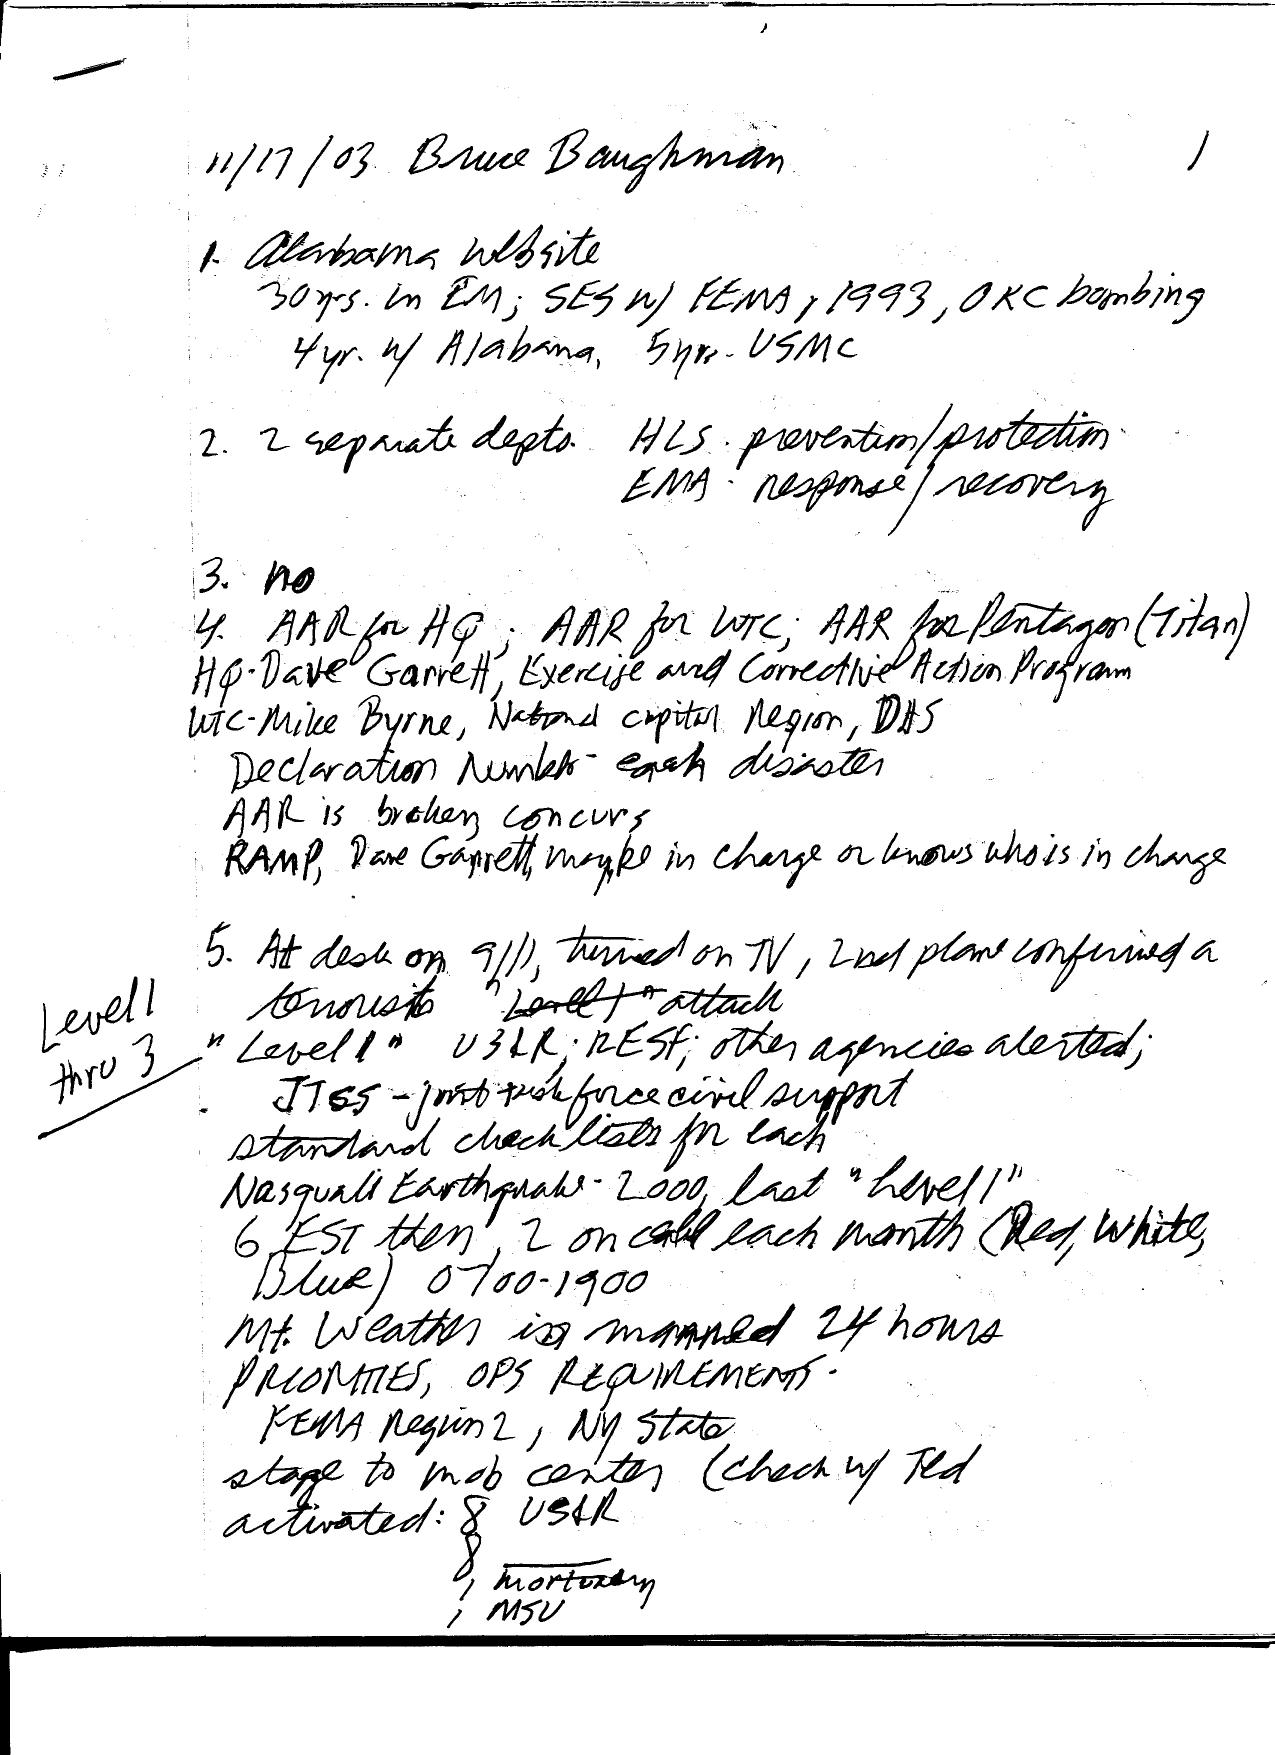 11/17/03 Bruce Baughman 1
1. Alabama website
30 yrs. in EM; SES w/ FEMA, 1993, OKC bombing
4 yr. w/ Alabama, 5 yrs. USMC
2. 2 separate depts. HLS - prevention/protection
EMA - response/recovery
3. no
4. AAR for HQ; AAR for WTC; AAR for Pentagon (Titan)
HQ-Dave Garrett, Exercise and Corrective Action Program
WTC-Mike Byrne, National Capitol Region, DHS
Declaration Number - each disaster
AAR is broken concurs
RAMP, Dave Garrett, maybe in charge or knows who is in charge
5. At desk on 9/11, turned on TV, 2nd plane confirmed a
terrorist "Level 1" attack
Level 1
thru 3
"Level 1" US&R; REST; other agencies alerted;
JTSS - joint task force civil support
standard checklists for each
Nasquali Earthquake - 2000, last "Level 1"
6 EST then, 2 on call each month (Red, White,
Blue) 0700-1900
Mt. Weather is manned 24 hours
PRIORITIES, OPS REQUIREMENTS.
FEMA Region 2, NY State
stage to mob center (check w/ Ted
activated: 8 US&R
8
1 mortuary
1 MSU